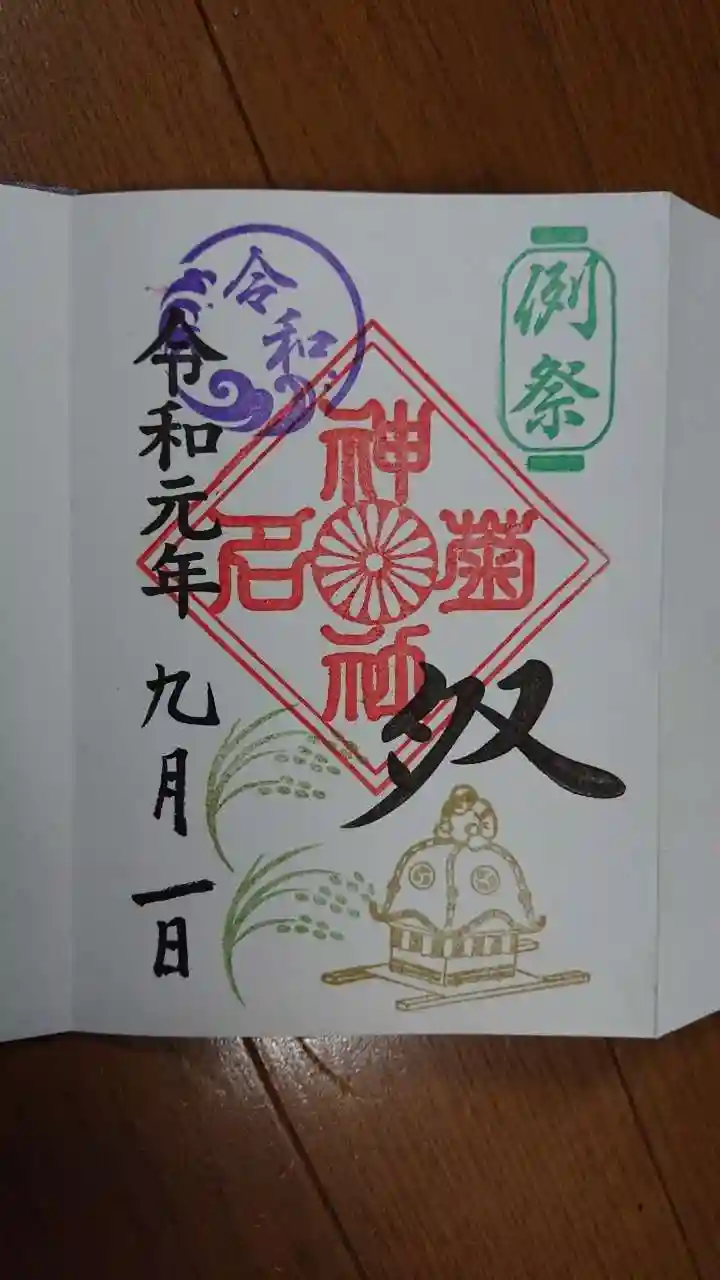 例祭
菊名
神社
令和
令和元年 九月 一日